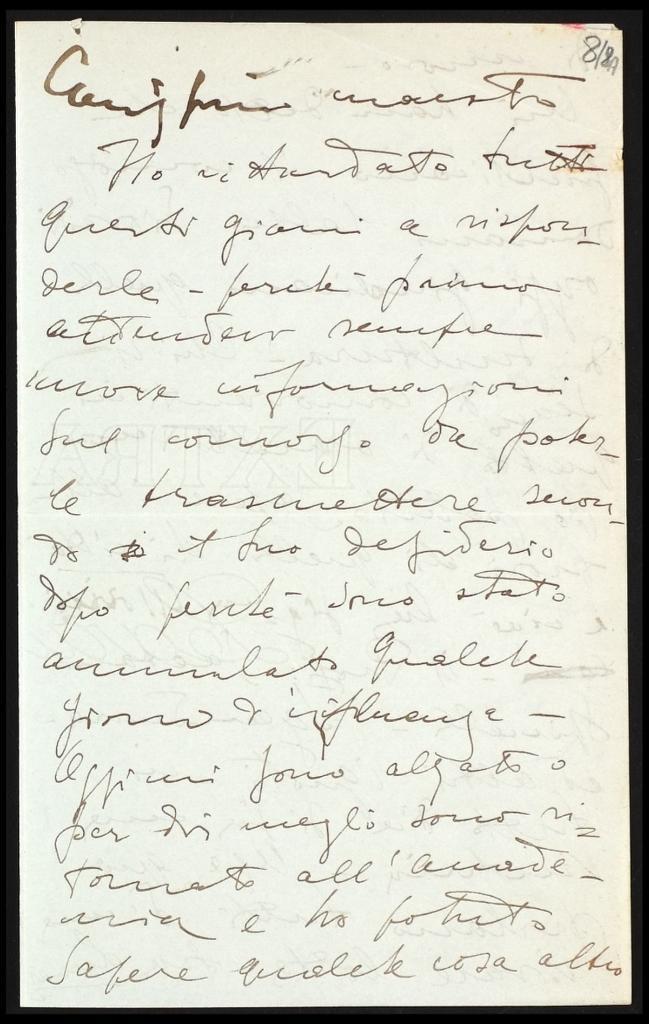 8/21
Carissimo maestro
Ho ritardato tutti
questi giorni a rispon-
derle - perchè primo
attendevo sempre
nuove informazioni
sul concorso da poter-
le trasmettere secon-
do il suo desiderio
dopo perchè sono stato
ammalato qualche
giorno d'influenza -
Oggi mi sono alzato o
per dir meglio sono ri-
tornato all'accade-
mia e ho potuto
sapere qualche cosa altro